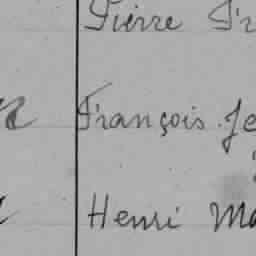 Pierre Fr
François Je
Henri Ma